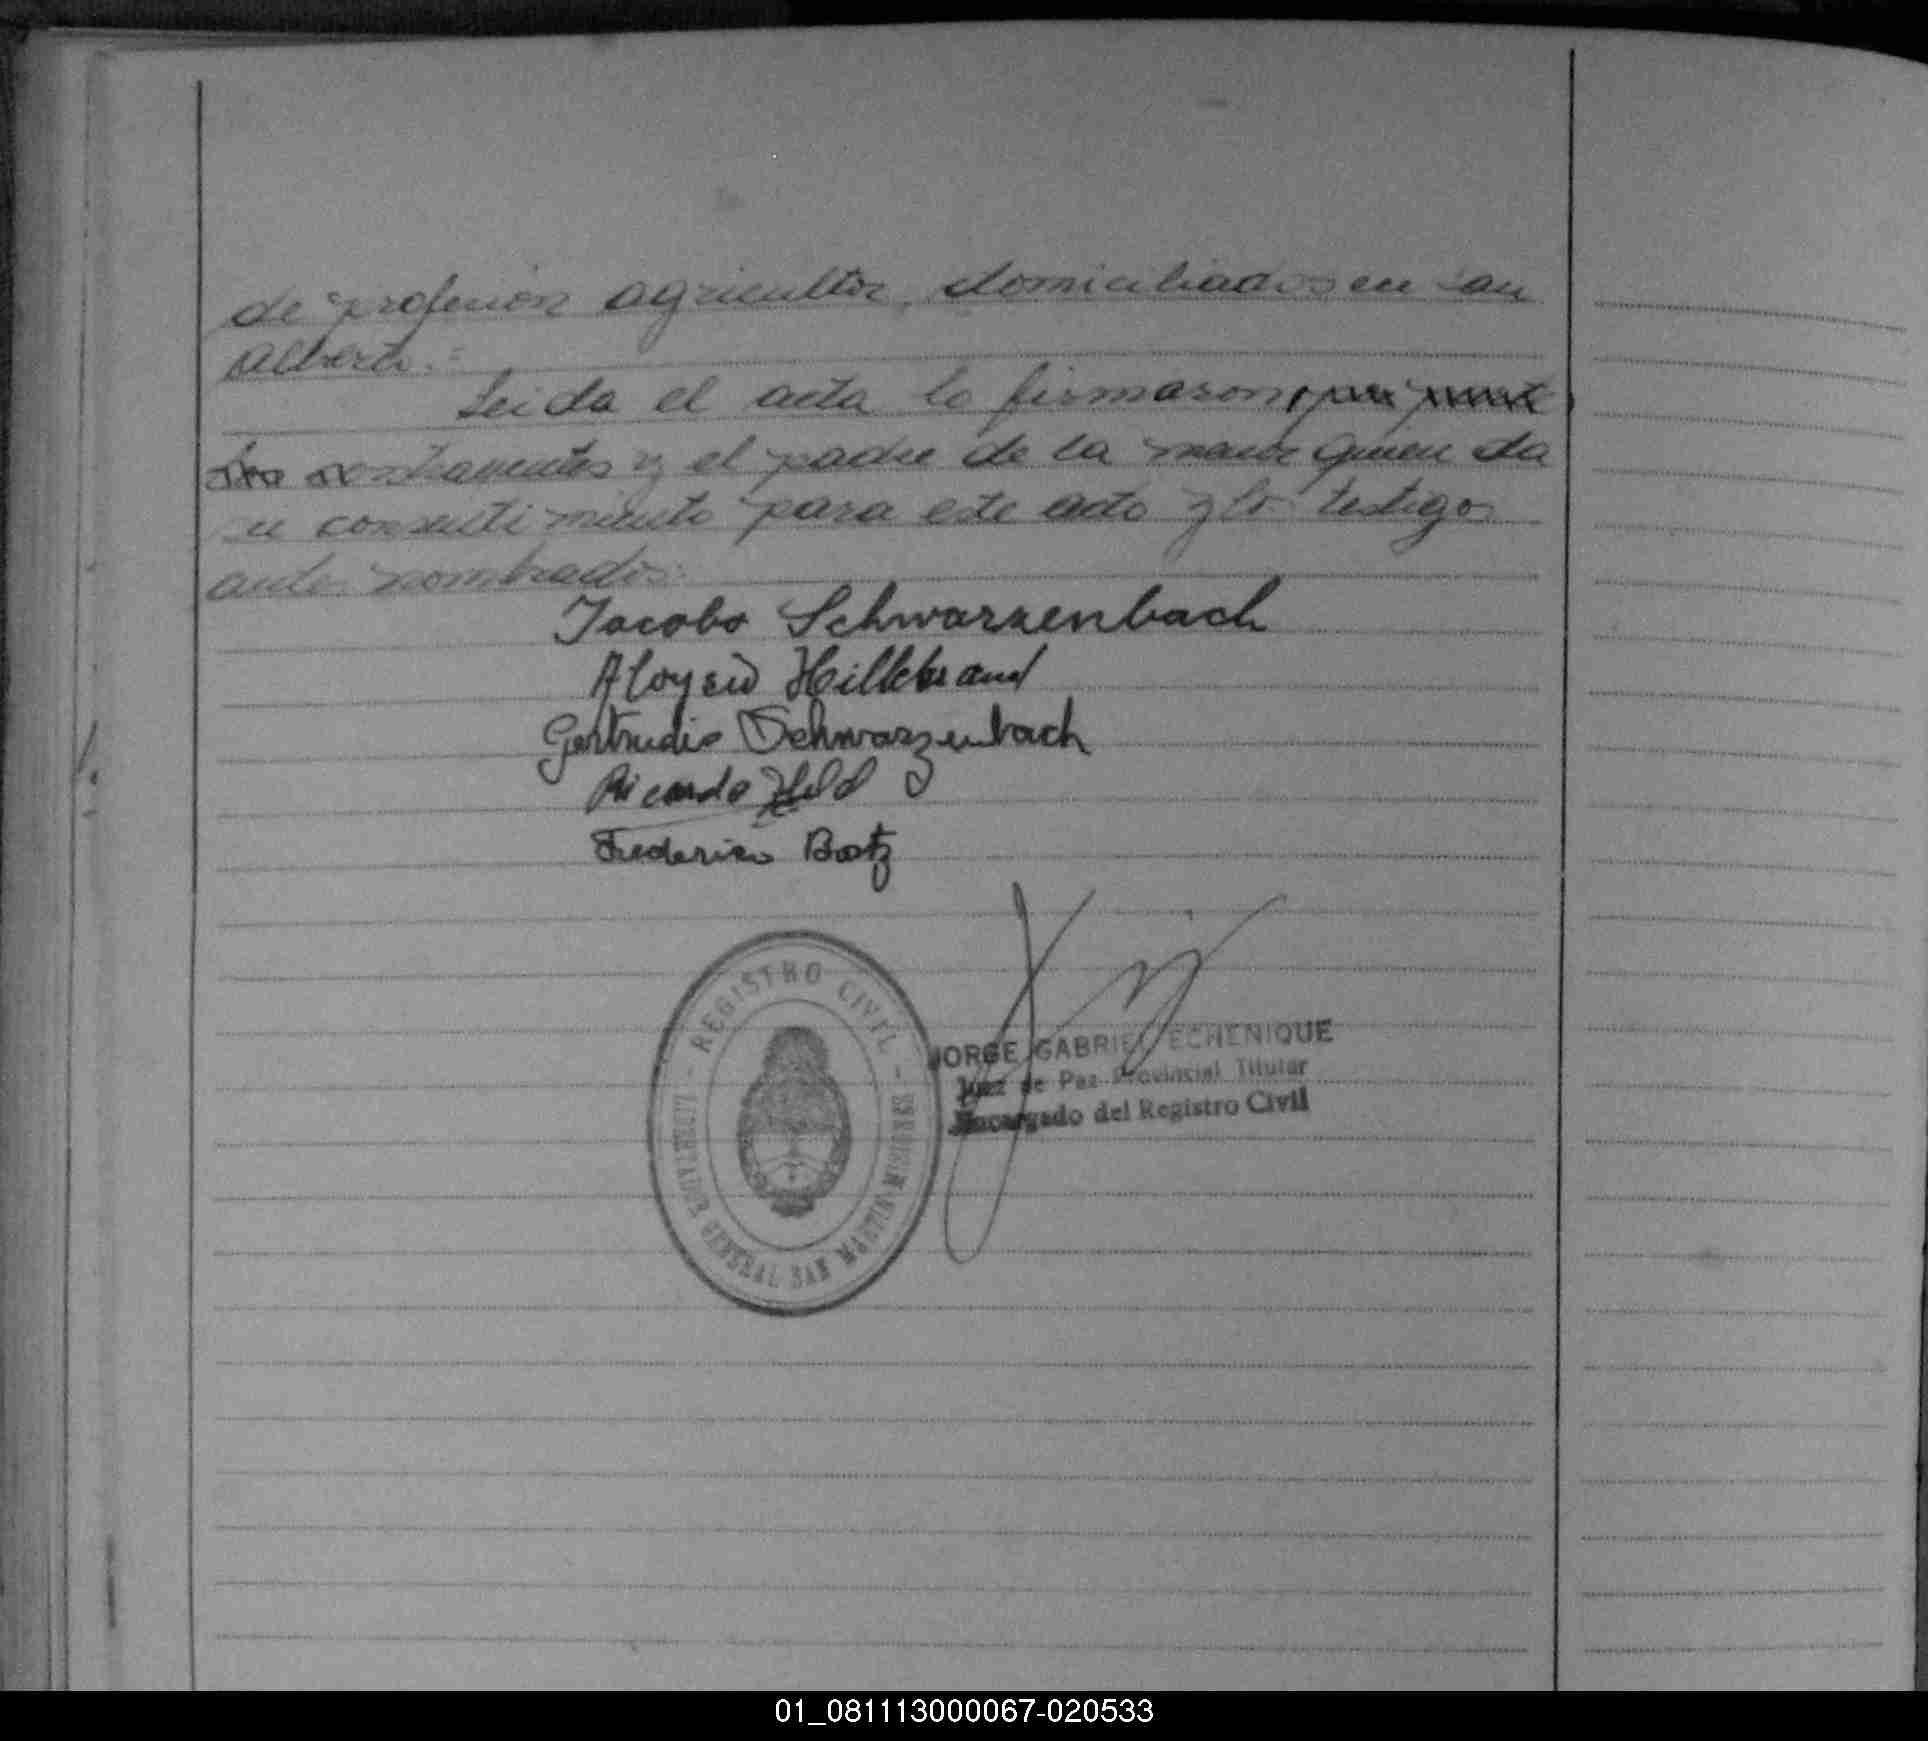 de profesion agricultor, domiciliados en San
Alberto.=
Leida el acta lo firmaron,
los contrayentes y el padre de la menor quien da
su consentimiento para este acto y los testigos
antes nombrados.
Jacobo Schwarzenbach
Aloysio Hillebrand
Gertrudis Schwarzenbach
Ricardo Held
Federico Bootz
REGISTRO CIVIL
LIBERTADOR GENERAL SAN MARTIN MISIONES
JORGE GABRIEL ECHENIQUE
Juez de Paz Provincial Titular
Encargado del Registro Civil
01_081113000067-020533